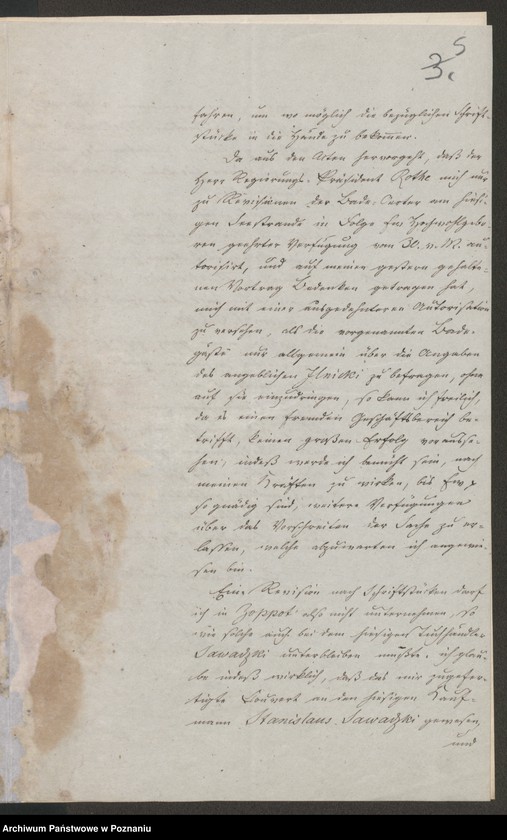 5
3.
fahren, um wo möglich die bezüglichen Schrift-
stücke in die Hände zu bekommen.
Da aus den Akten hervorgeht, daß der
Herr Regierungs-Präsident Rothe mich nur
zu Revisionen der Bade-Oerter am hiesi-
gen Seestrande in Folge Ew. Hochwohlgebo-
ren geehrter Verfügung vom 30. v. M. au-
torisirt, und auf meinen gestern gehalte-
nen Vortrag Bedenken getragen hat,
mich mit einer ausgedehnteren Autorisation
zu versehen, als die vorgenannten Bade-
gäste nur allgemein über die Angaben
des angeblichen Ilnicki zu befragen, ohne
auf sie einzudringen, so kann ich freilich,
da es einen fremden Geschäftsbereich be-
trifft, keinen großen Erfolg vorausse-
hen, indeß werde ich bemüht sein, nach
meinen Kräften zu wirken, bis Ew. p
so gnädig sind, weitere Verfügungen
über das Vorschreiten der Sache zu er-
lassen, welche abzuwarten ich angewie-
sen bin.
Eine Revision nach Schriftstücken darf
ich in Zoppot also nicht unternehmen, so
wie solche auch bei dem hiesigen Tuchhändler
Sawadzki unterbleiben mußte. ich glau-
be indeß wirklich, daß das mir zugefer-
tigte Couvert an den hiesigen Kauf-
mann Stanislaus Sawadzki gewesen,
und
Archiwum Państwowe w Poznaniu